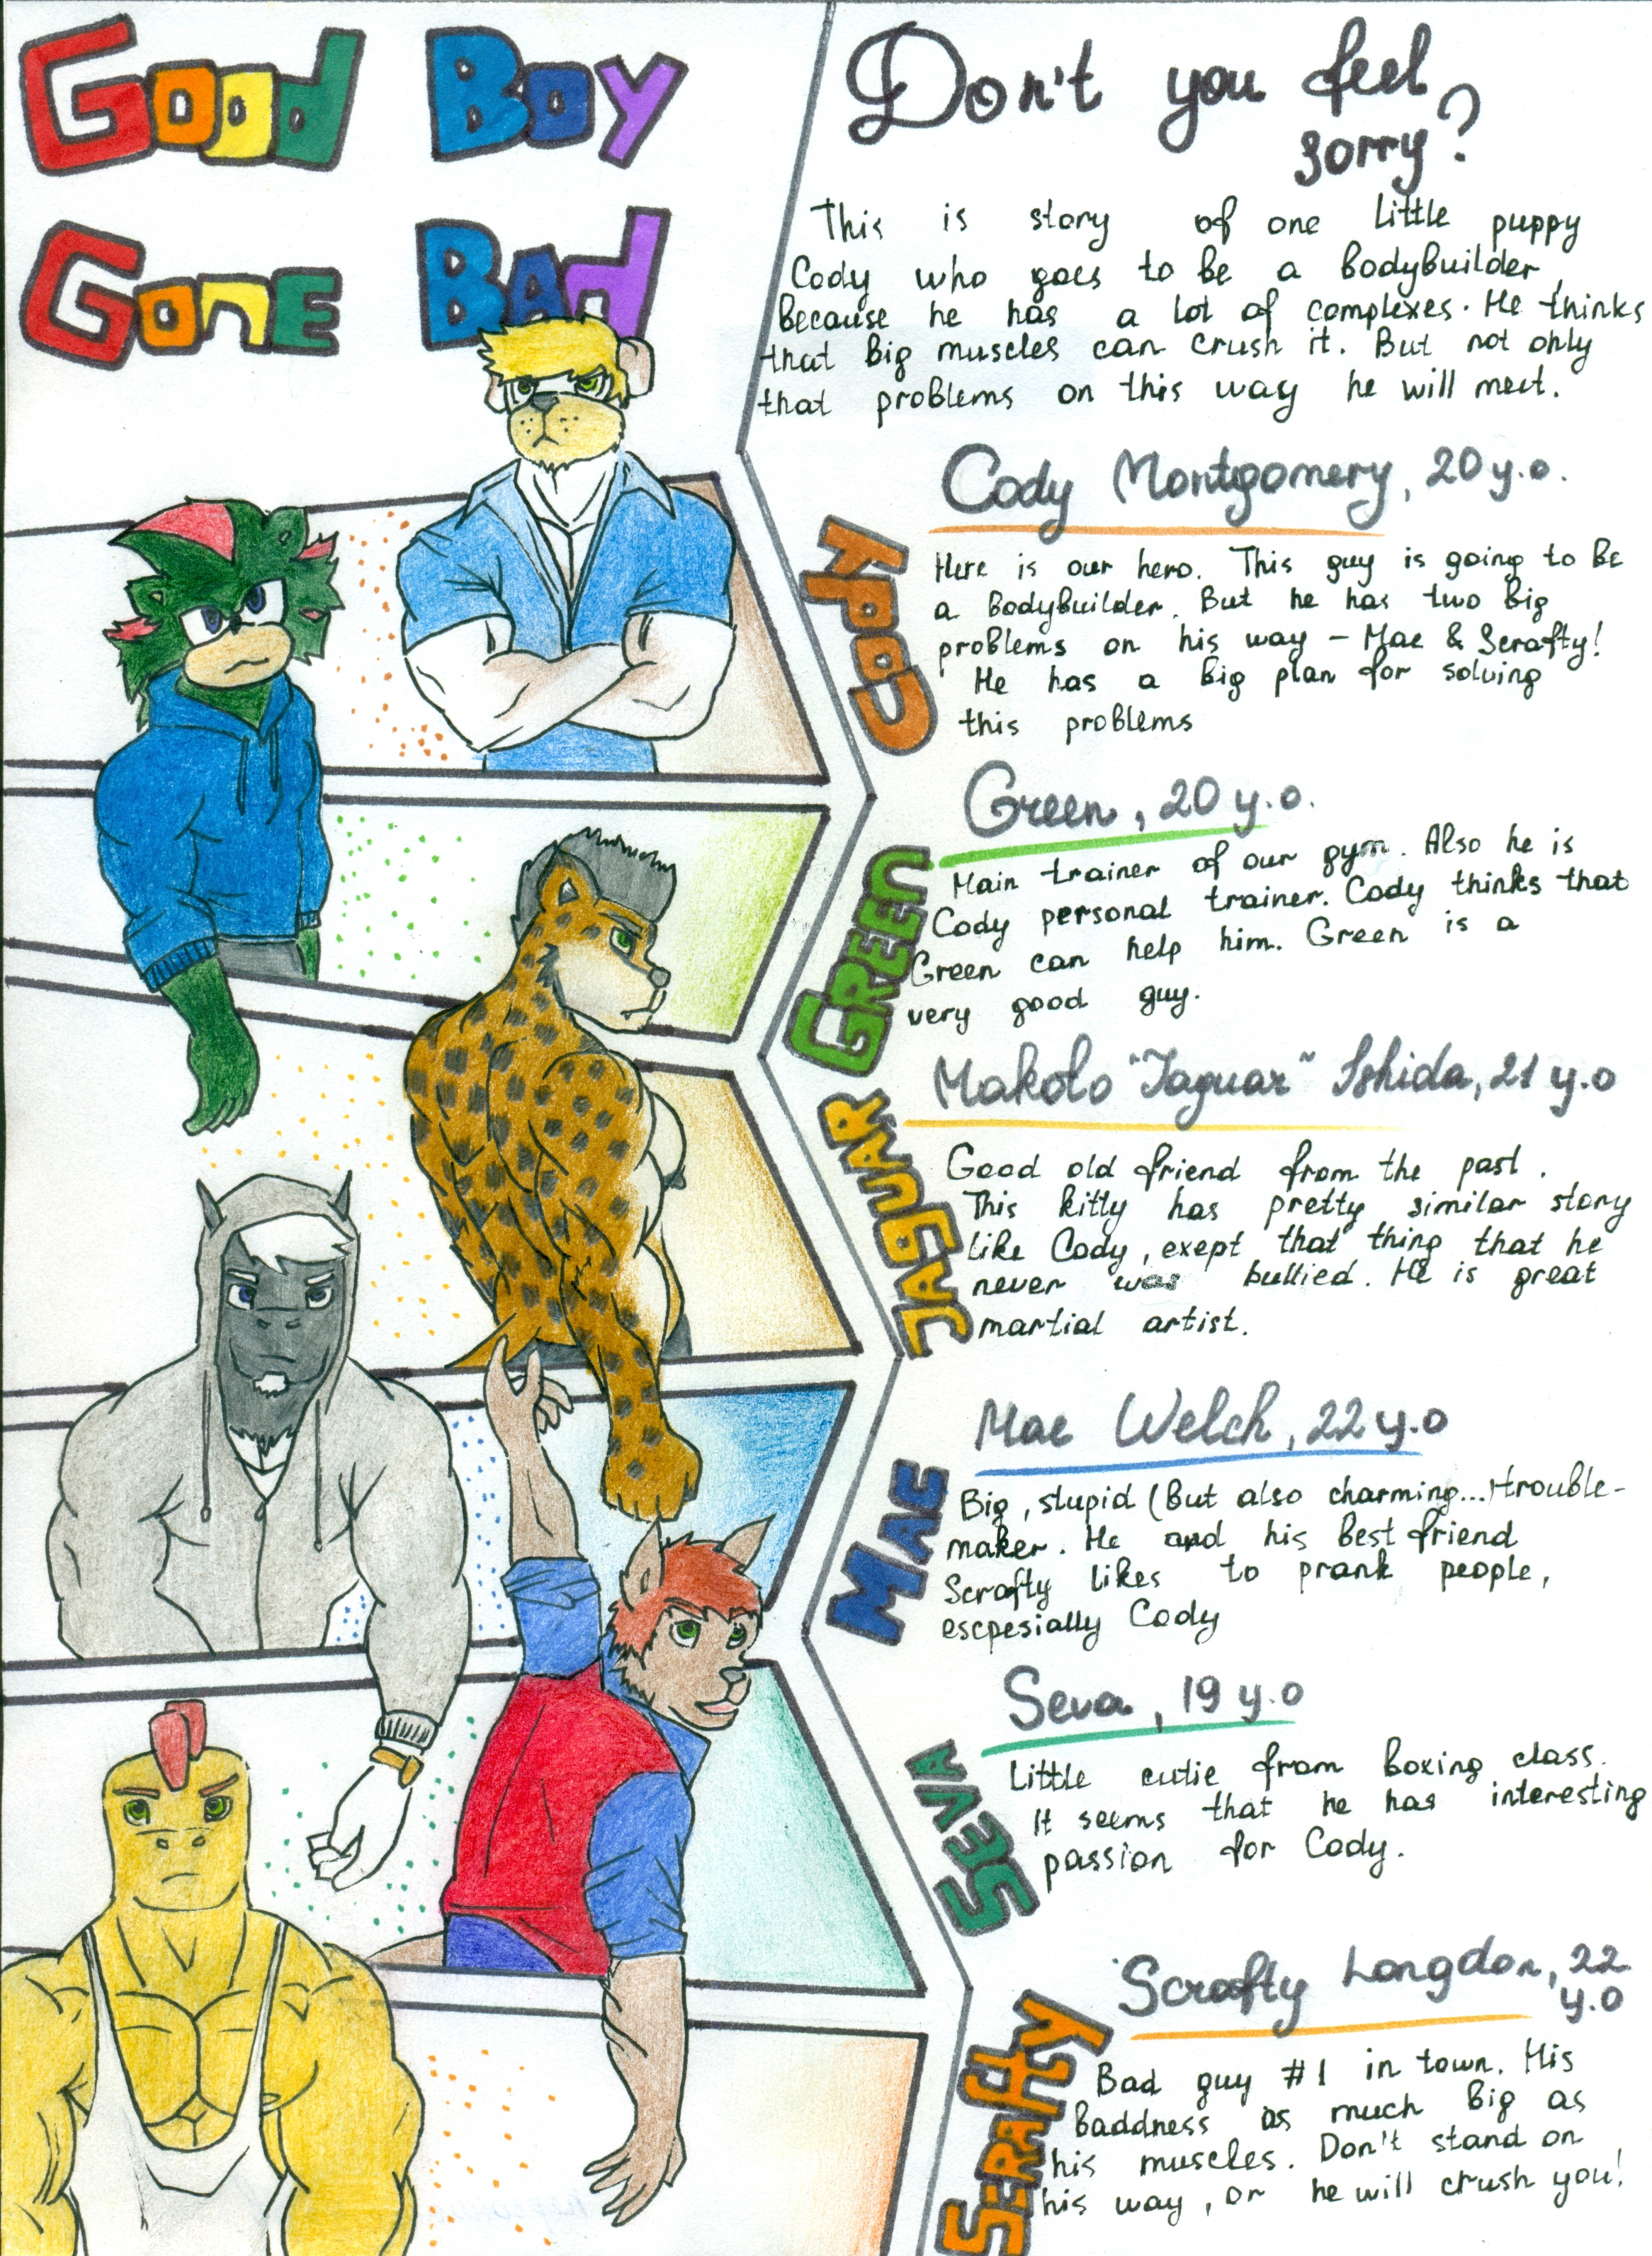 Good Boy
Gone Bad
Don't you feel
sorry?
This is story of one little puppy
Cody who goes to be a bodybuilder,
because he has a lot of complexes. He thinks
that big muscles can crush it. But not only
that problems on this way he will meet.
Cody Montgomery, 20 y.o.
Cody
Here is our hero. This guy is going to be
a bodybuilder. But he has two big
problems on his way – Mae & Scrafty!
He has a big plan for solving
this problems
Green, 20 y.o.
Green
Main trainer of our gym. Also he is
Cody personal trainer. Cody thinks that
Green can help him. Green is a
very good guy.
Makoto "Jaguar" Ishida, 21 y.o
Jaguar
Good old friend from the past.
This kitty has pretty similar story
like Cody, exept that thing that he
never was bullied. He is great
martial artist.
Mae Welch, 22 y.o
Mae
Big, stupid (But also charming...) trouble-
maker. He and his best friend
Scrafty likes to prank people,
escpesially Cody
Seva, 19 y.o
Seva
Little cutie from boxing class.
It seems that he has interesting
passion for Cody.
Scrafty Longdon, 22
y.o
Scrafty
Bad guy #1 in town. His
baddness as much big as
his muscles. Don't stand on
his way, or he will crush you!